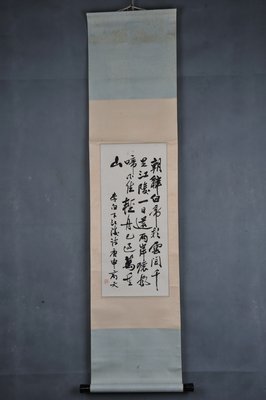 朝辞白帝彩雲間千
里江陵一日還兩岸猿聲
啼不住輕舟已過萬重
山
李白下江陵詩庚申